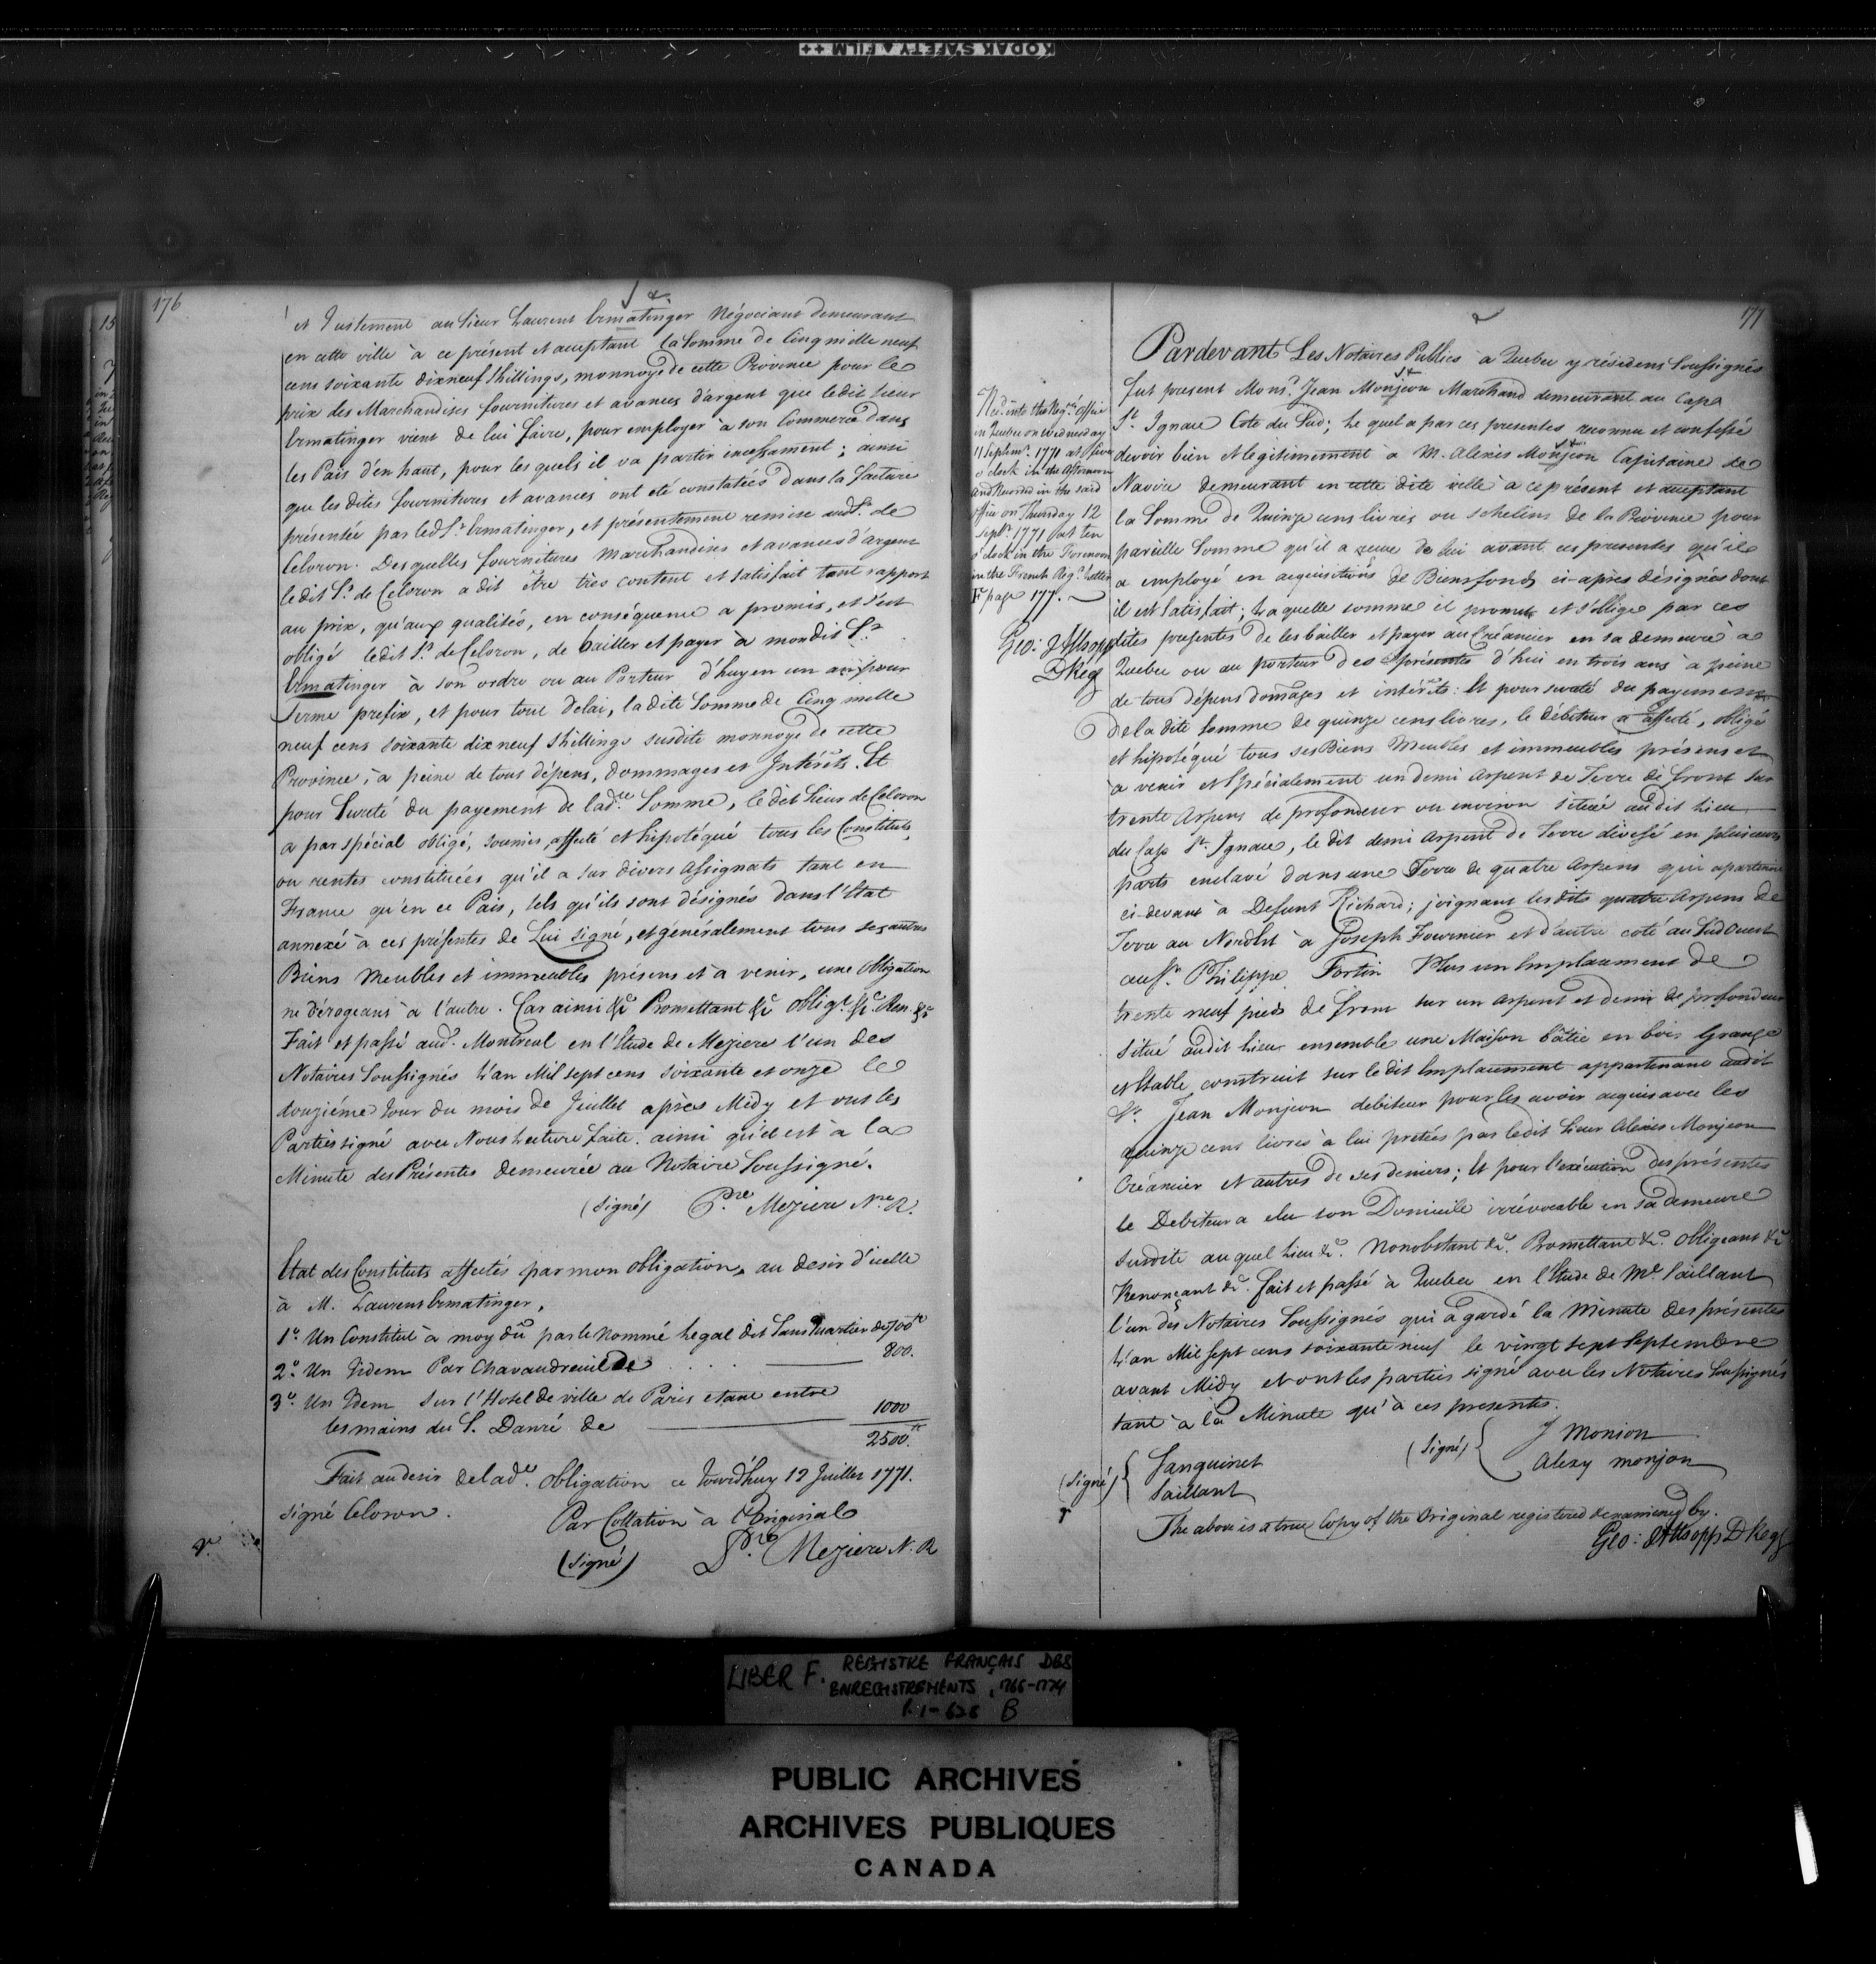 KODAK SAFETY FILM ++
176
et Justement au Sieur Laurent Ermatinger Négociant demeurant
en cette ville à ce présent et acceptant la Somme de Cinq mille neuf
cens soixante dixneuf Shillings, monnoye de cette Province pour le
prix des Marchandises fournitures et avances d'argent que ledit Sieur
Ermatinger vient de lui faire, pour employer à son Commerce dans
les Païs d'en haut, pour les quels il va partir incessament; ainsi
que les dites fournitures et avances ont été constatées dans la facture
présentée par led Sr. Ermatinger, et présentement remise aud Sr. de
Celoron. Desquelles fournitures Marchandises et avances d'argent
ledit Sr. de Celoron a dit être très content et satisfait tant rapport
au prix, qu'aux qualités, en conséquence a promis, et s'est
obligé ledit Sr. de Celoron, de bailler et payer à mondit Sr.
Ermatinger à son ordre ou au Porteur d'huy en un an pour
Terme prefix, et pour tout delai, la dite Somme de Cinq mille
neuf cens soixante dix neuf Shillings susdite monnoye de cette
Province, à peine de tous dépens, dommages et Intérêts. Et
pour Sureté du payement de lade. Somme, le dit Sieur de Celoron
a par spécial obligé, soumis, affecté et hipotéqué tous les Constituts,
ou rentes constituées qu'il a sur divers Assignats tant en
France qu'en ce Païs, tels qu'ils sont désignés dans l'Etat
annexé à ces présentes de Lui signé, et généralement tous ses autres
Biens Meubles et immeubles présens et à venir, une Obligation
ne dérogeant à l'autre. Car ainsi &c Promettant &c Obligt. &c. Ren. &c
Fait et passé aud. Montreal en l'Etude de Meziere l'un des
Notaires Soussignés L'an Mil sept cens soixante et onze le
douziéme Jour du mois de Juillet après Midy et ont les
Parties signé avec Nous Lecture faite. ainsi qu'il est à la
Minute des Présentes demeurée au Notaire Soussigné.
(signé) Pre. Meziere Nre. R.
Etat des Constituts affectés par mon Obligation, au desir d'icelle
à M. Laurent Ermatinger,
1o. Un Constitut à moy dû par le Nommé Legal dit Sans Quartier de 700tt
2o. Un Idem Par Chavaudreuil de 800.
3o. Un Idem Sur l'Hotel de ville de Paris etant entre
les mains du S. Danré de 1000
2500.tt
Fait au desir de lade. Obligation ce Jourd'huy 12 Juillet 1771.
signé Celoron. Par Collation à l'Original
(signé) Pre. Meziere N. R
177
Recd. into the Regrs. Office
in Quebec on Wednesday
11 Septemr. 1771 at five
o'clock in the Afternoon
and Recorded in the said
office on Thursday 12
Septr. 1771 at ten
o'clock in the Forenoon
in the French Regr. Letter
F page 177.
Geo: Allsopp
DReg
Pardevant Les Notaires Publics à Quebec y résidens Soussignés
fut present Monsr. Jean Monjeon Marchand demeurant au Cap
St. Ignace Cote du Sud; Le quel a par ces presentes reconnu et confessé
devoir bien et legitimement à M. Alexis Monjeon Capitaine de
Navire demeurant en cette dite ville à ce présent et acceptant
la Somme de Quinze cens livres ou schelins de la Province pour
pareille Somme qu'il a reçue de lui avant ces presentes qu'il
a employé en acquisitions de Biensfonds ci-après désignés dont
il est satisfait; Laquelle somme il promet et s'oblige par ces
dites presentes de les bailler et payer au Créancier en sa demeure à
Quebec ou au porteur des présentes d'hui en trois ans à peine
de tous dépens domages et intérêts: Et pour sureté du payement
de la dite somme de quinze cens livres, le débiteur a affecté, obligé
et hipotéqué tous ses Biens Meubles et immeubles présens et
à venir et Spécialement un demi arpent de Terre de front sur
trente Arpens de profondeur ou environ située audit lieu
du Cap St. Ignace, le dit demi Arpent de Terre divisé en plusieurs
parts enclavé dans une Terre de quatre Arpens qui apartenoit
ci-devant à Defunt Richard; joignant lesdits quatre Arpens de
Terre au Nord Est à Joseph Fournier et d'autre coté au Sud Ouest
au Sr. Philippe Fortin Plus un Emplacement de
trente neuf pieds de front sur un Arpent et demi de profondeur
Situé audit lieu ensemble une Maison bâtie en bois Grange
et Etable construit sur ledit Emplacement appartenant audit
Sr. Jean Monjeon debiteur pour les avoir acquis avec les
quinze cens livres à lui pretées par ledit Sieur Alexis Monjeon
Créancier et autres de ses deniers; Et pour l'exécution des présentes
le Debiteur a elu son Domicile irrévocable en sa demeure
Susdite auquel lieu &c. Nonobstant &c. Promettant &c. Obligeant &c
Renonçant &c. fait et passé à Quebec en l'Etude de Me Saillant
l'un des Notaires Soussignés qui a gardé la Minute des présentes
L'an Mil Sept cens soixante neuf le vingt sept Septembre
avant Midy et ont les parties signé avec les Notaires Soussignés
tant à la Minute qu'à ces presentes.
(signé) { J Monion
Alexy monjon
(signé) { Sanguinet
Saillant
The above is a true Copy of the Original registered & examined by.
Geo: Allsopp DReg
LIBER F. REGISTRE FRANÇAIS DES
ENREGISTREMENTS, 1766-1774
P. 1-628 B
PUBLIC ARCHIVES
ARCHIVES PUBLIQUES
CANADA